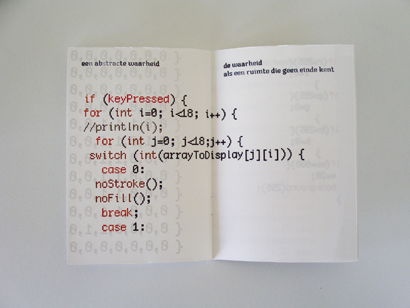 een abstracte waarheid
de waarheid
als een ruimte die geen einde kent
if (keyPressed) {
for (int i=0; i<18; i++) {
//println(i);
for (int j=0; j<18;j++) {
switch (int(arrayToDisplay[j][i])) {
case 0:
noStroke();
noFill();
break;
case 1: